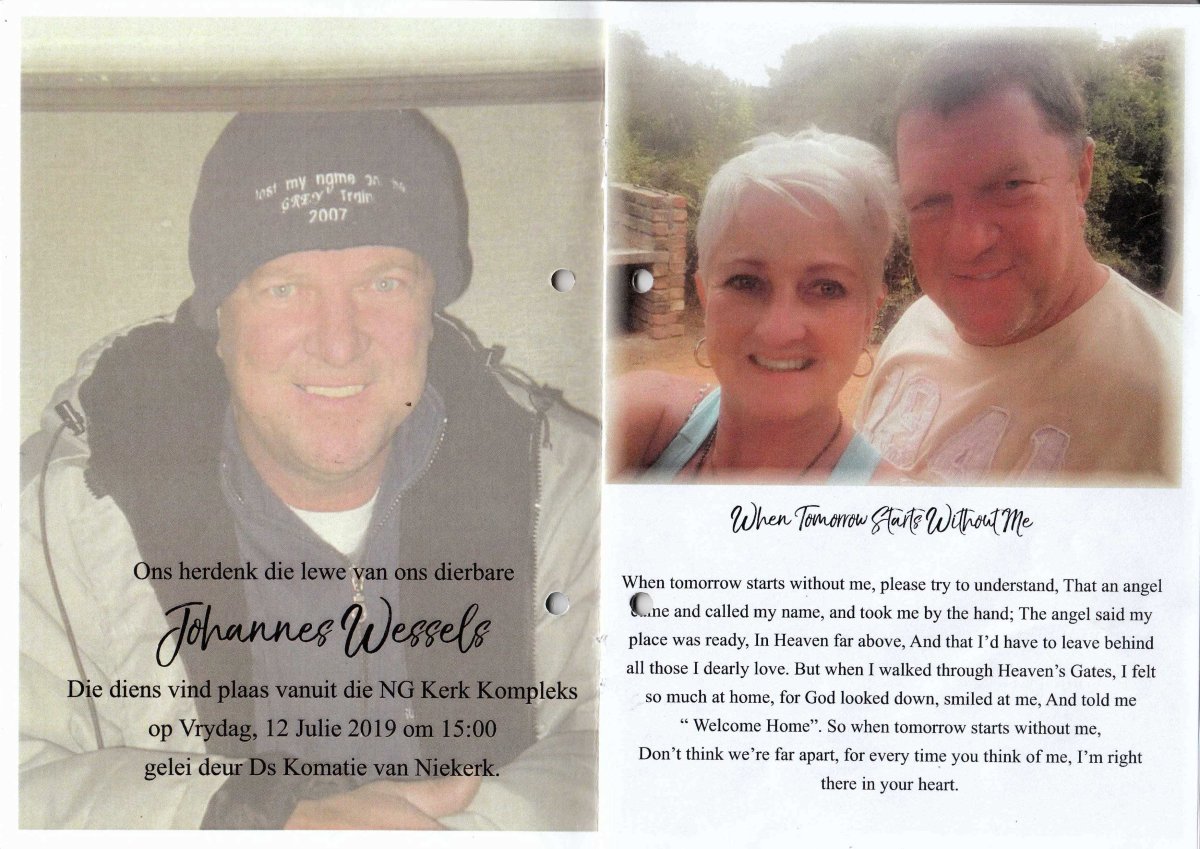 lost my name on
GREY Train
2007
Ons herdenk die lewe van ons dierbare
Johannes Wessels
Die diens vind plaas vanuit die NG Kerk Kompleks
op Vrydag, 12 Julie 2019 om 15:00
gelei deur Ds Komatie van Niekerk.
When Tomorrow Starts Without Me
When tomorrow starts without me, please try to understand, That an angel
and called my name, and took me by the hand; The angel said my
place was ready, In Heaven far above, And that I’d have to leave behind
all those I dearly love. But when I walked through Heaven’s Gates, I felt
so much at home, for God looked down, smiled at me, And told me
“ Welcome Home”. So when tomorrow starts without me,
Don’t think we’re far apart, for every time you think of me, I’m right
there in your heart.